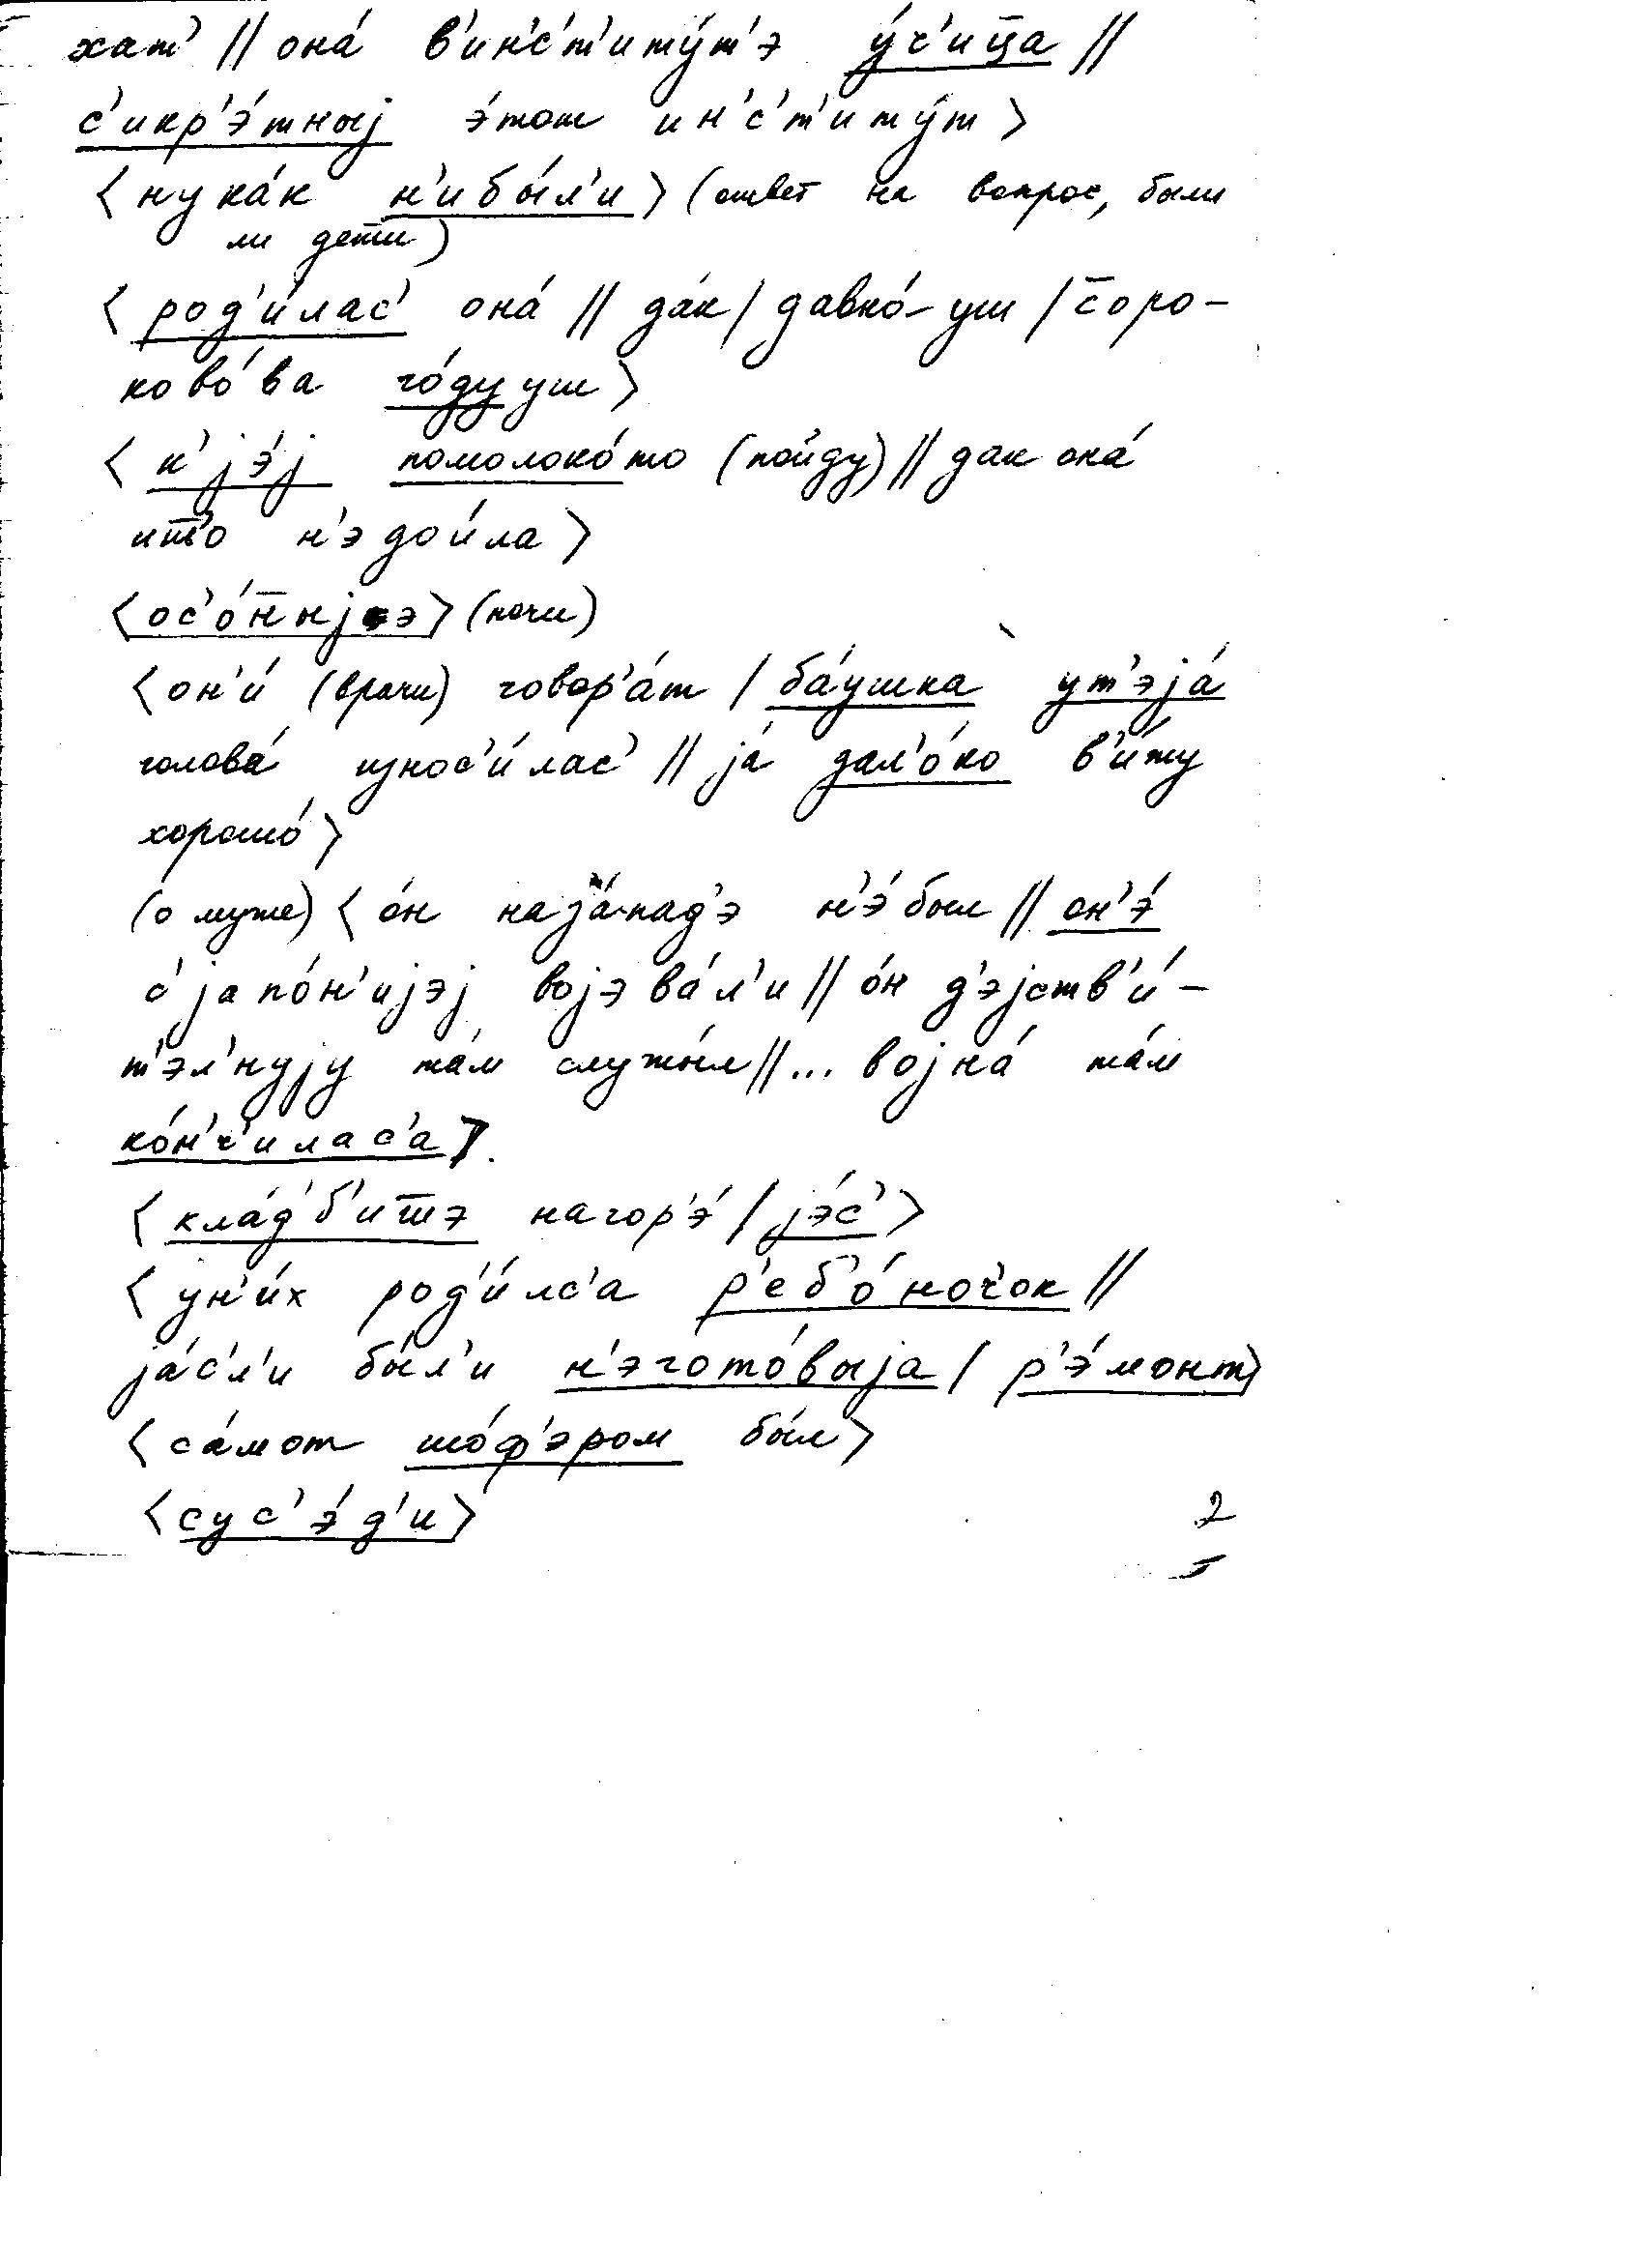 хат' // она́ в'ин'с'т'иту́т'э у́ч'иц̄а //
с'икр'э́тныј э́тот ин'с'т'иту́т>
<ну ка́к н'ибы́л'и> (ответ на вопрос, были
ли дети)
<род'и́лас' она́ // да́к / давно́-уш / с̄оро-
ково́ва го́ду уш>
<к'јэ́ј помолоко́то (пойду) // дак она́
ишо н'эдои́ла>
<ос'о́н̄ыјэ> (ночи)
<он'и́ (врачи) говор'а́т / ба́ушка ут'эја́
голова́ износ'и́лас' // ја́ дал'о́ко в'и́жу
хорошо́>
(о муже) <о́н на за́пад'э н'э́был // он'э́
с'јапо́н'ијэј војэва́л'и // о́н д'эјств'и́-
т'эл'нују та́м служы́л // ... војна́ та́м
ко́н'ч'илас'а>
<кла́д'б'иш̄э нагор'э́ / јэ́с'>
<ун'и́х род'и́лс'а р'еб'о́ноч'ок //
ја́с'л'и бы́л'и н'эгото́выја / р'э́монт>
<са́мот шо́ф'эром бы́л>
<сус'э́д'и>
2